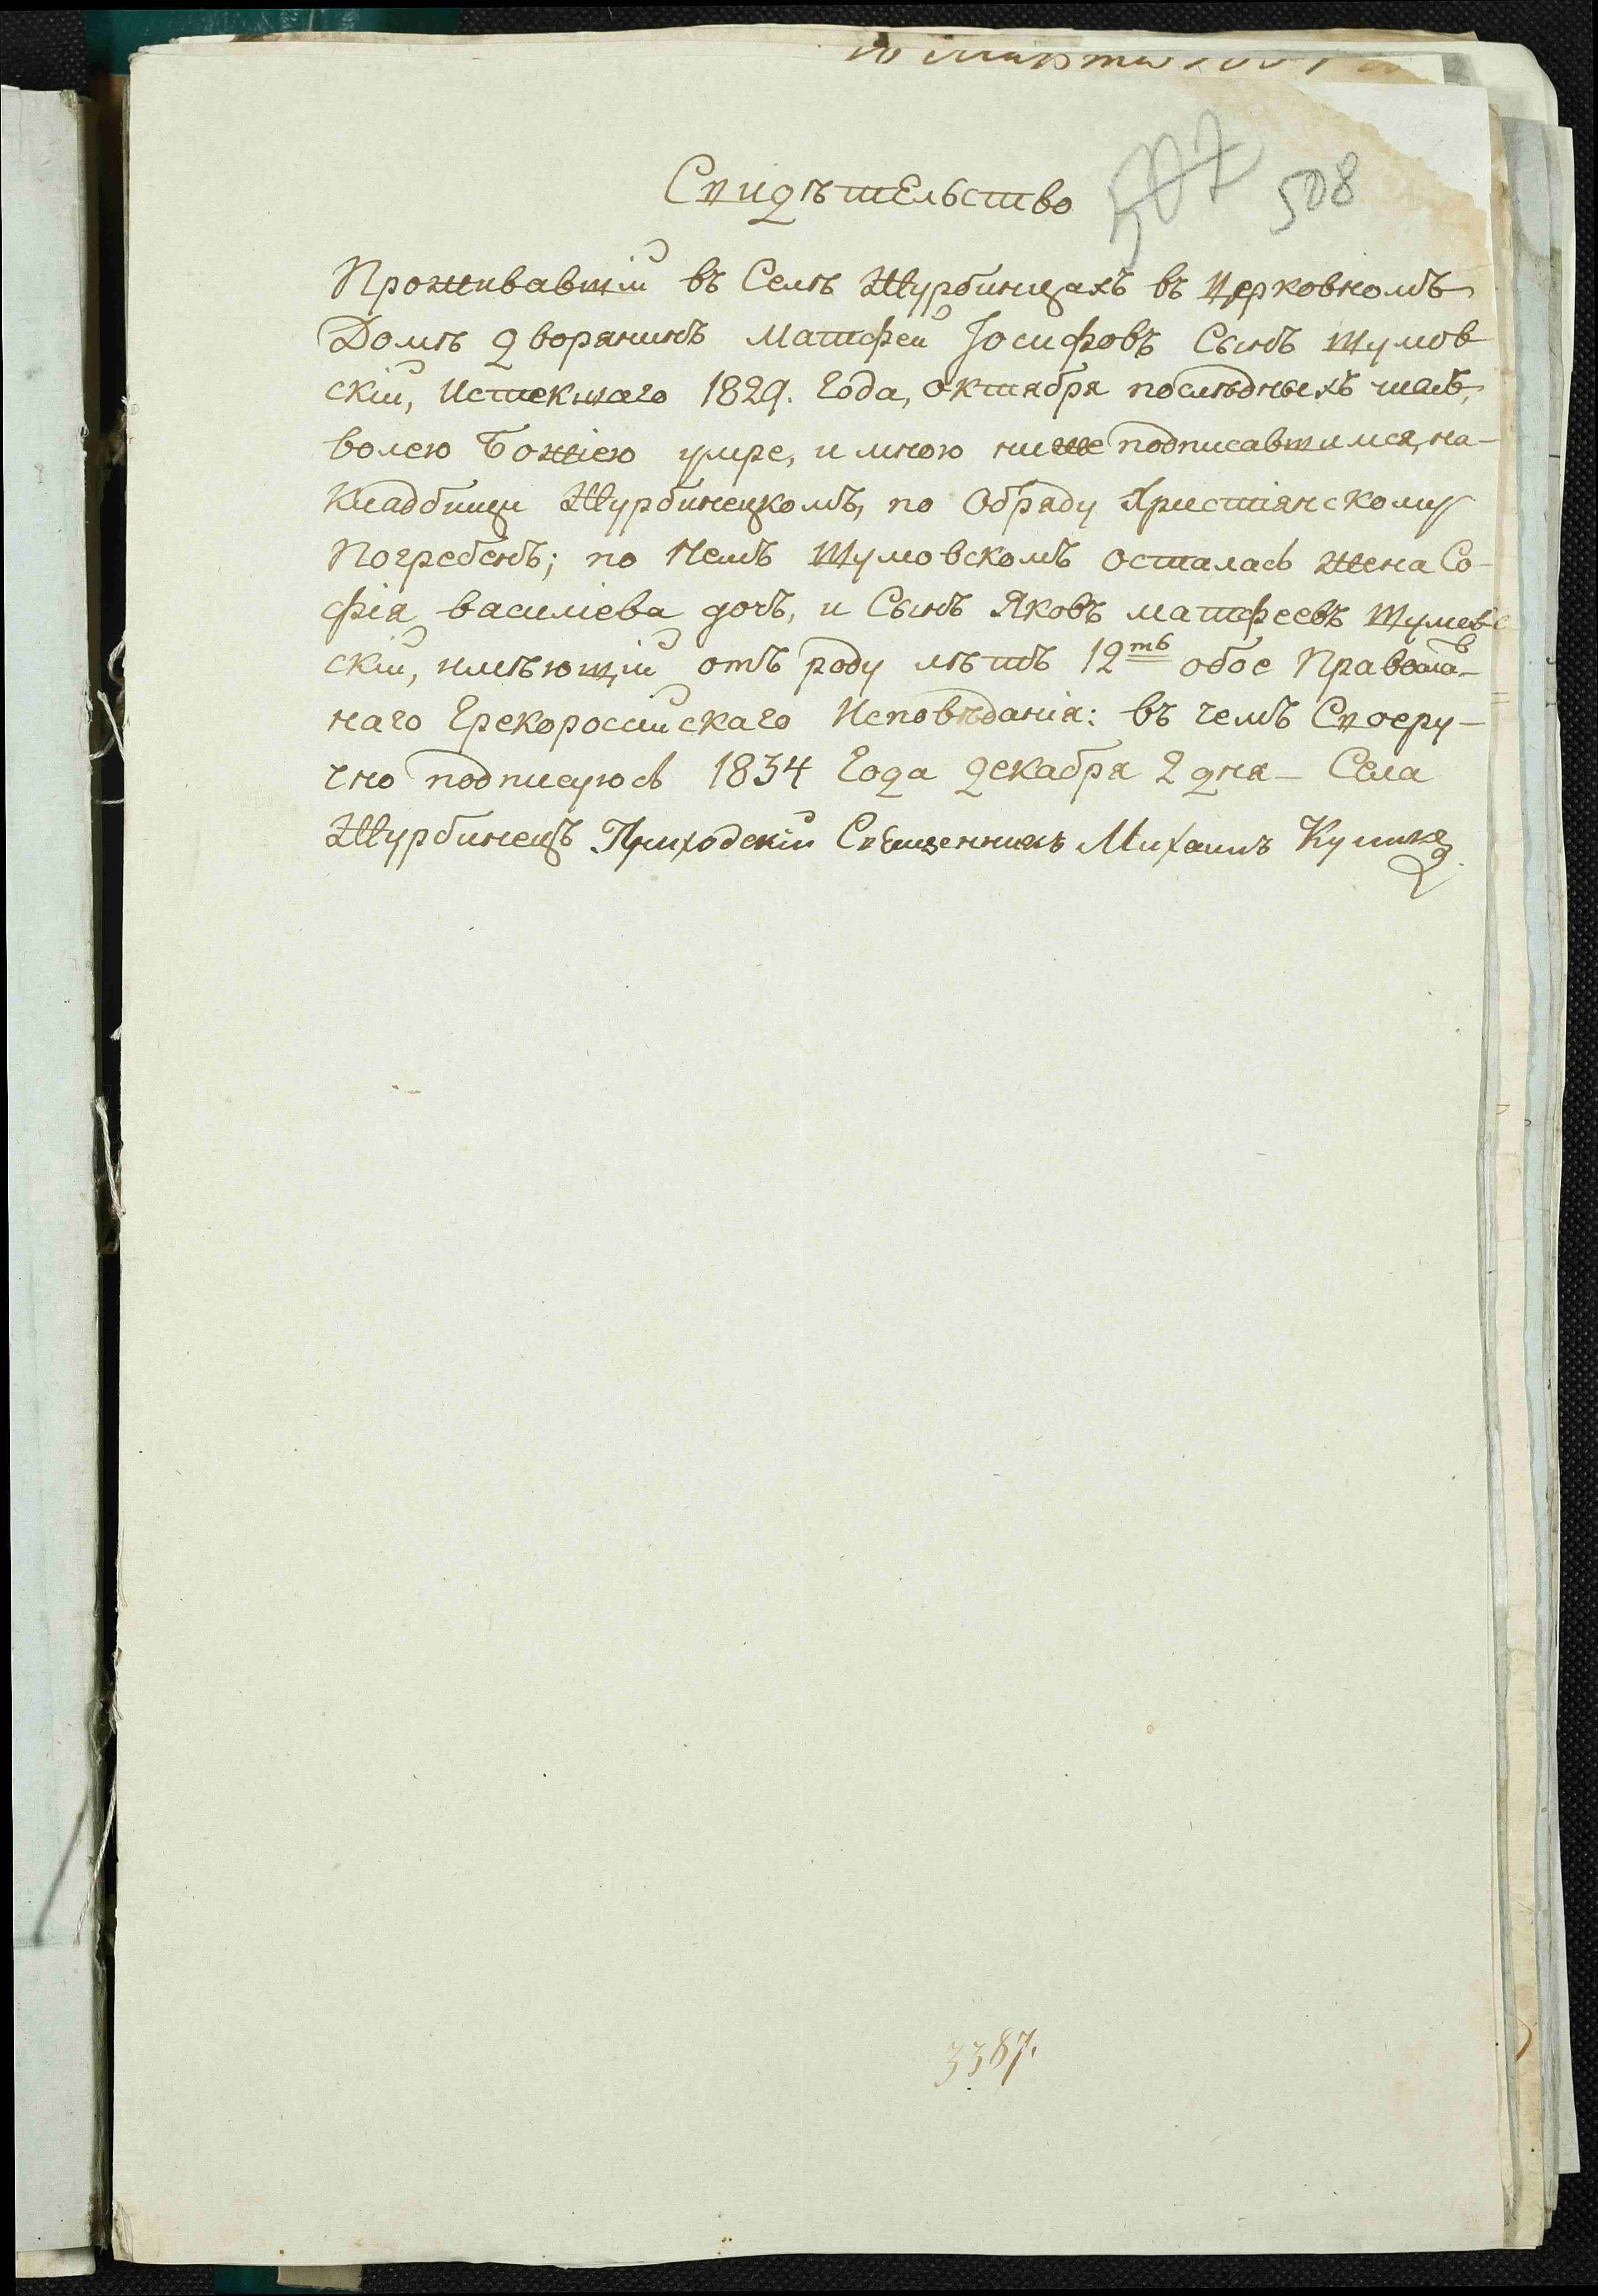 507 508
Свидѣтельство
Проживавшій въ Селѣ Журбинцахъ въ Церковномъ
Домѣ дворянинъ Матфей Іосифовъ Сынъ Шумов
скій, Истекшаго 1829. Года, октября послѣдныхъ числъ,
волею Божіею умре, и мною ниже подписавшимся, на-
Кладбищи Журбинецкомъ, по Обряду Христіянскому
Погребенъ; по Немъ Шумовскомъ осталась жена Со-
фія василіева дочь, и Сынъ Яковъ матфеевъ Шумов
скій, имѣющій отъ роду лѣтъ 12ть обое Православ-
наго Грекоросшійскаго Исповѣданія: въ чемъ Своеру-
чно подписуюсь 1834 Года декабря 2 дня - Села
Журбинецъ Приходскій Священникъ Михаилъ
3387.